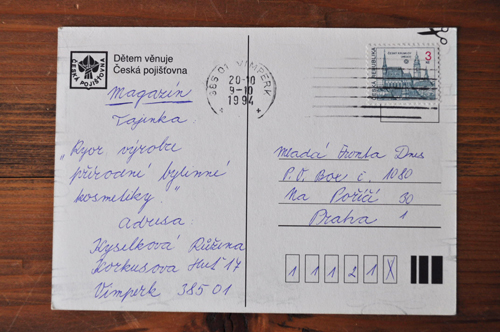 Dětem věnuje
Česká pojišťovna
ČESKÁ POJIŠŤOVNA
Magazín
Tajinka
"Ryor výroba
přírodní bylinné
kosmetiky."
Adresa:
Kyselková Růžena
Korkusova Huť 17
Vimperk 385 01
385 01 VIMPERK
20-10
9-10
1994
3
ČESKÁ REPUBLIKA
Mladá Fronta Dnes
P.O. Box č. 1080
Na Poříčí 30
Praha 1
1 1 1 2 1 X